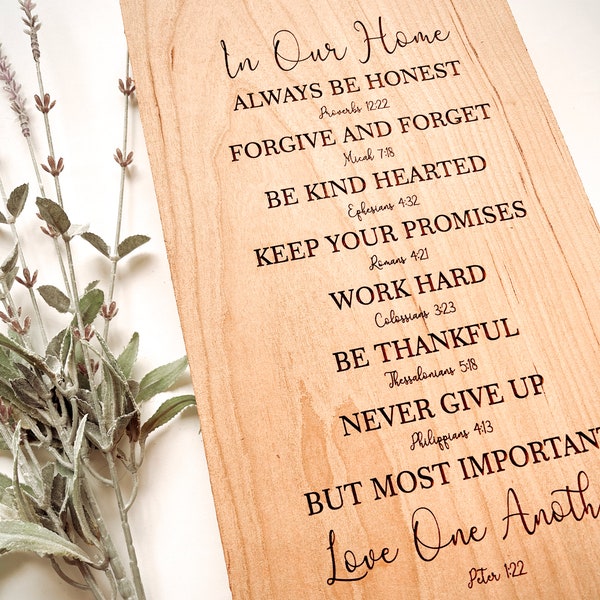 In Our Home
ALWAYS BE HONEST
Proverbs 12:22
FORGIVE AND FORGET
Micah 7:18
BE KIND HEARTED
Ephesians 4:32
KEEP YOUR PROMISES
Romans 4:21
WORK HARD
Colossians 3:23
BE THANKFUL
Thessalonians 5:18
NEVER GIVE UP
Philippians 4:13
BUT MOST IMPORTANT
Love One Anoth
Peter 1:22